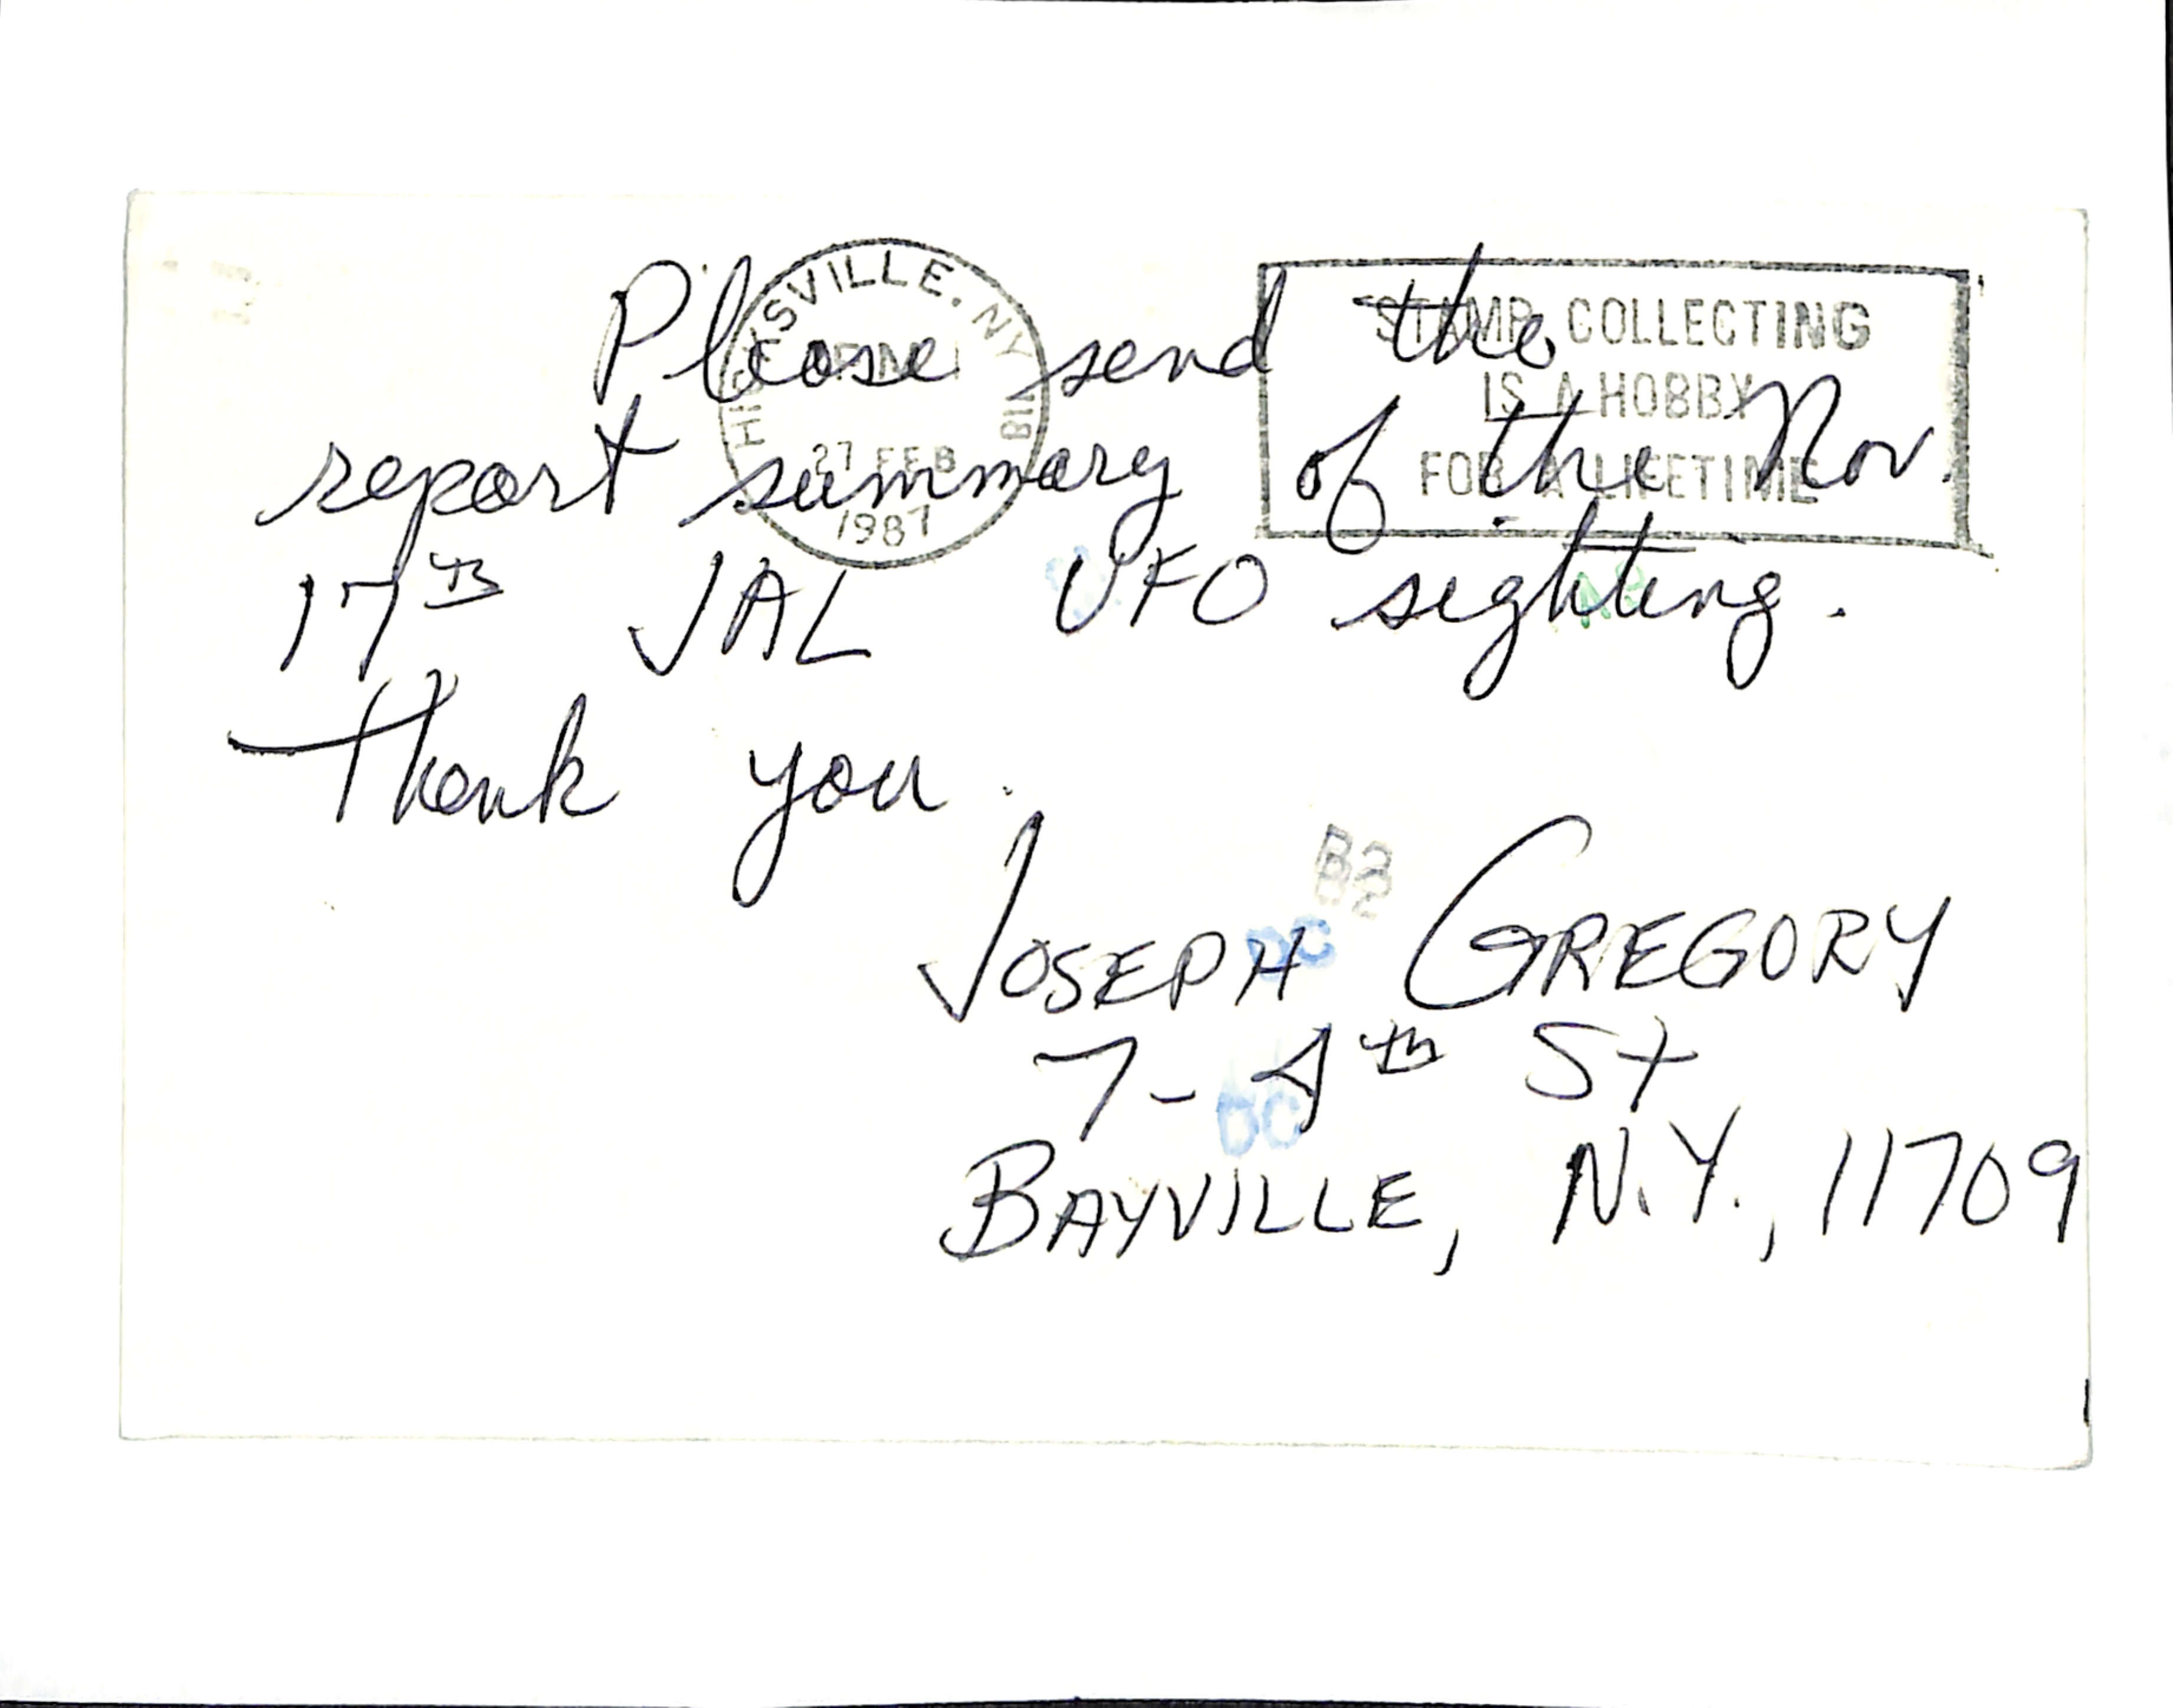 Please send the
report summary of the Nov.
17th JAL UFO sighting.
Thank you.
JOSEPH GREGORY
7- 4th St
BAYVILLE, N.Y., 11709
HICKSVILLE, NY
PM
27 FEB
1987
STAMP COLLECTING
IS A HOBBY
FOR A LIFETIME
DC
DC